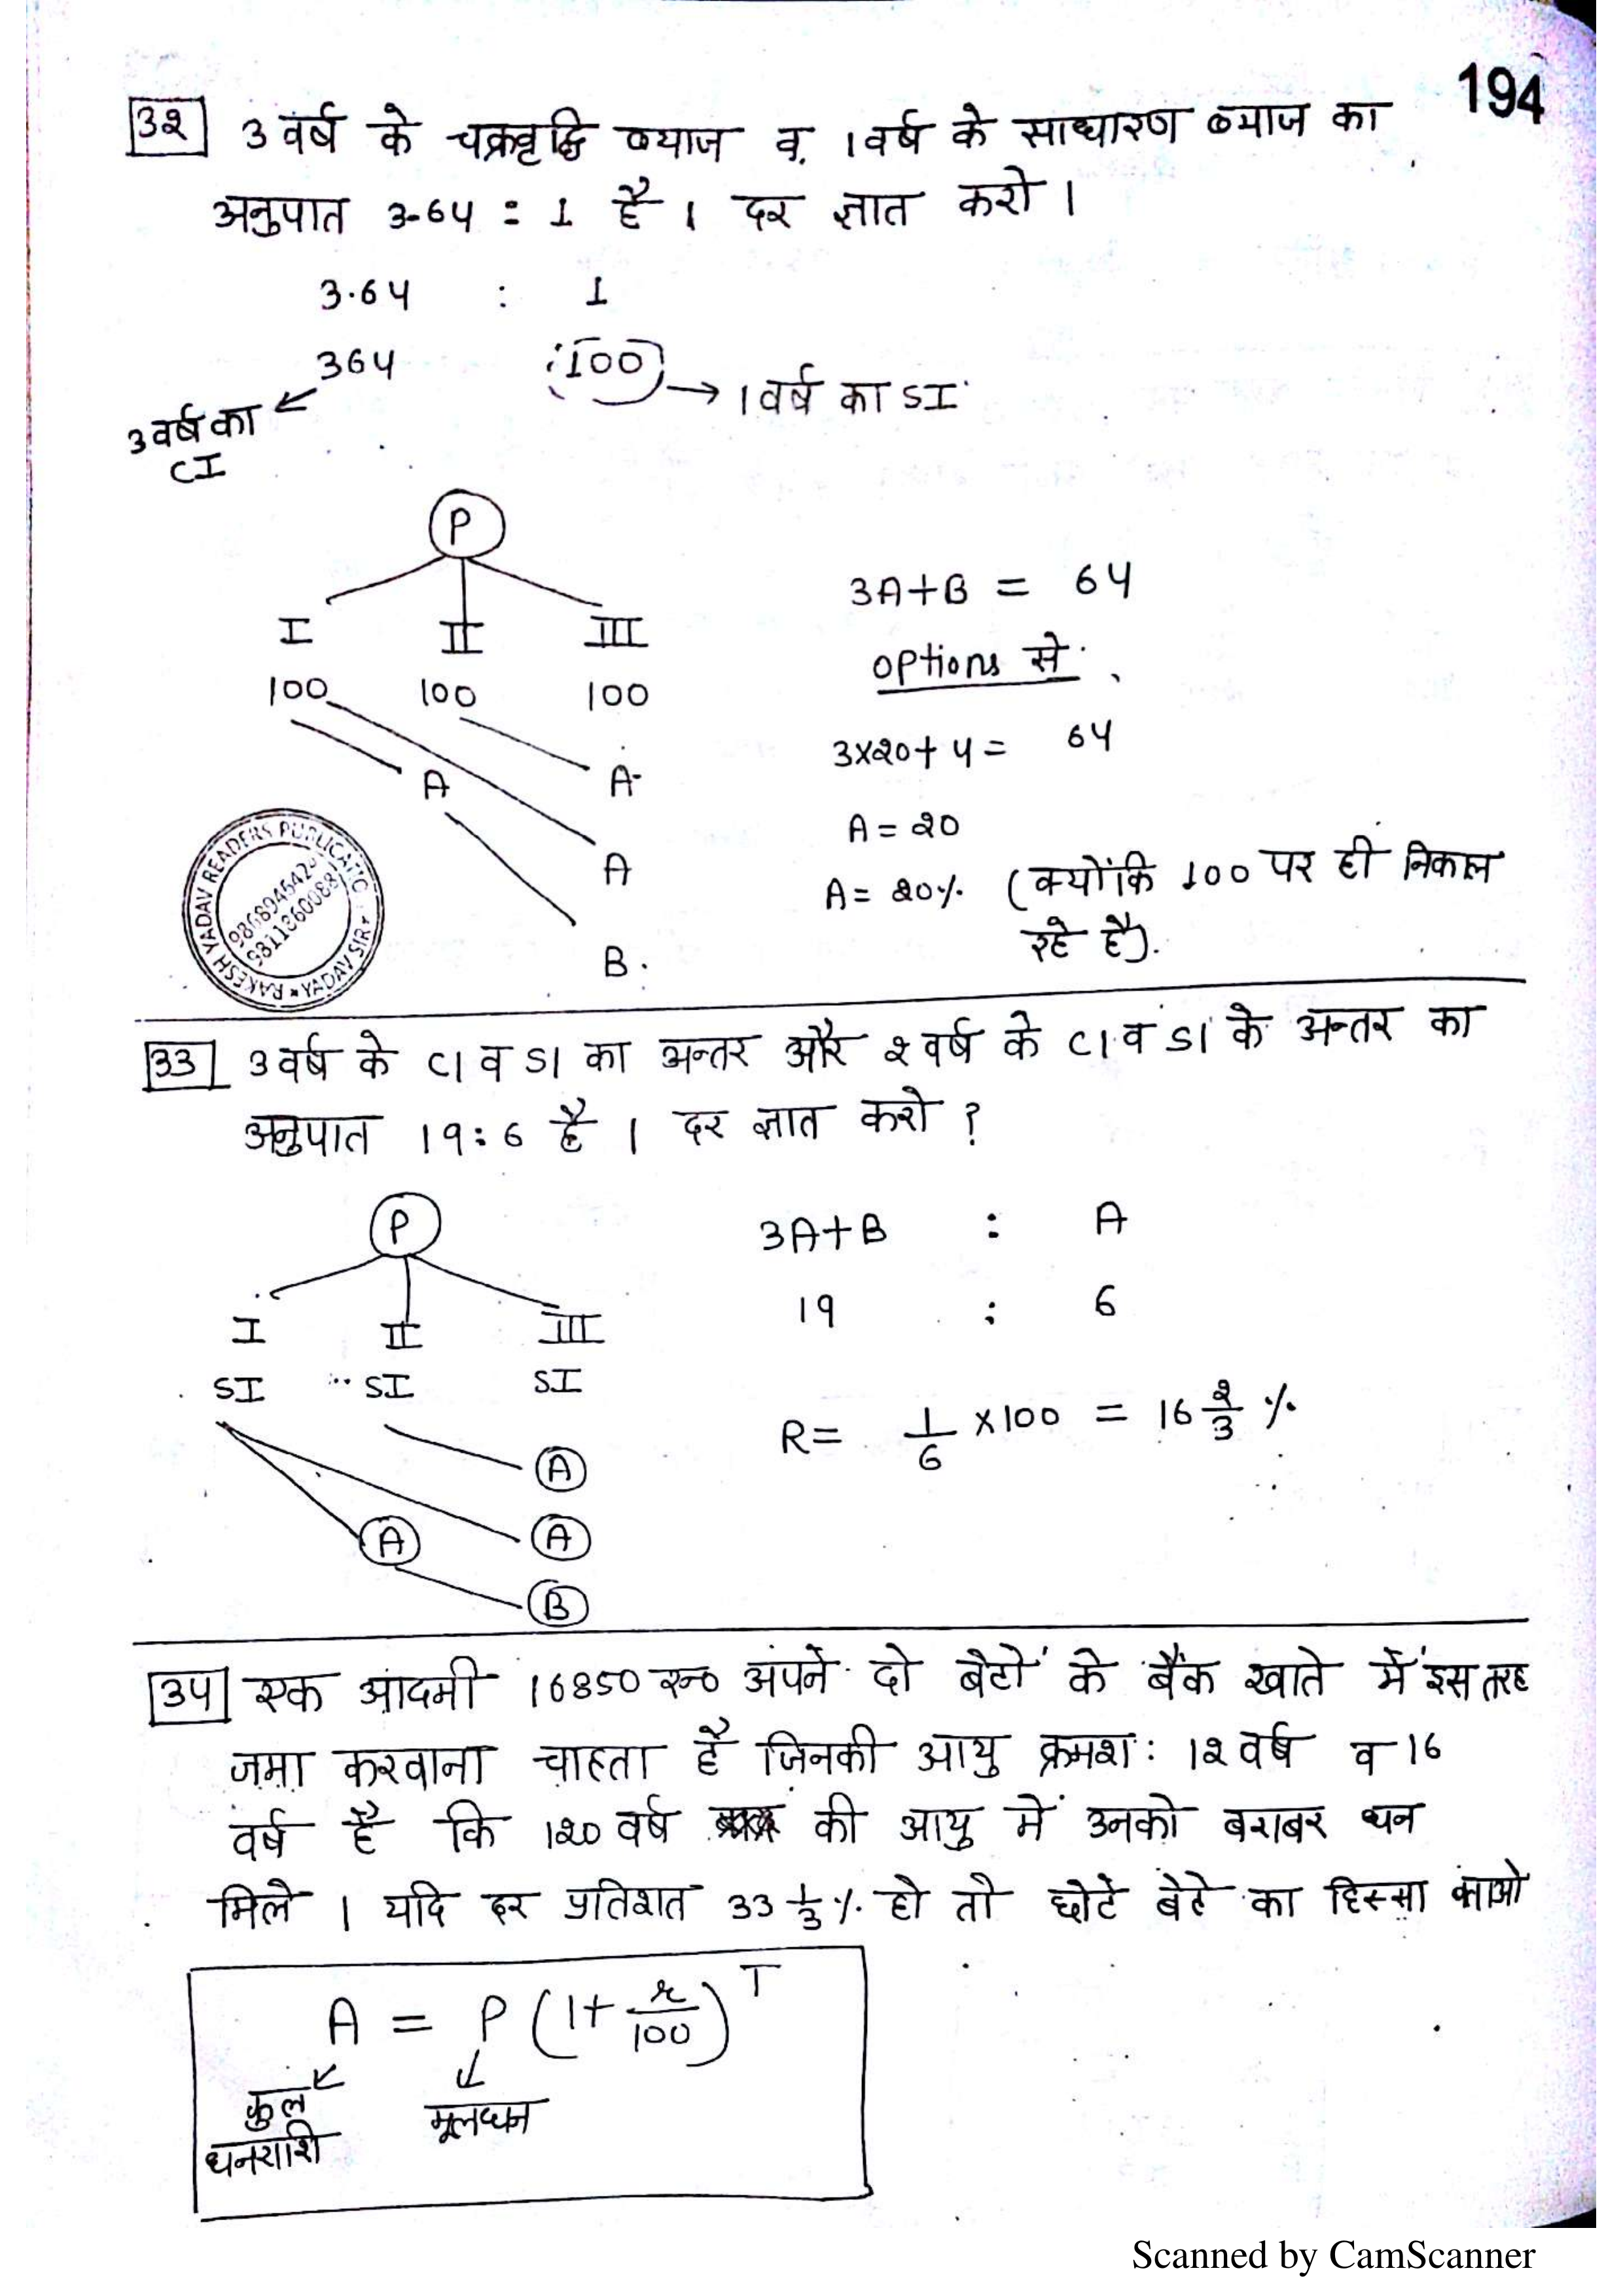 194
32 3 वर्ष के चक्रवृद्धि ब्याज व 1 वर्ष के साधारण ब्याज का
अनुपात 3.64 : 1 है । दर ज्ञात करो ।
3.64 : 1
364 : 100 → 1 वर्ष का SI
3 वर्ष का
CI
P
I II III
100 100 100
A A
A
B
3A+B = 64
options से
3x20+4 = 64
A = 20
A = 20% (क्योंकि 100 पर ही निकाल
रहे है).
RAKESH YADAV READERS PUBLICATION
YADAV SIR
9868946424
9811360088
33 3 वर्ष के CI व SI का अन्तर और 2 वर्ष के CI व SI के अन्तर का
अनुपात 19:6 है । दर ज्ञात करो ?
P
I II III
SI SI SI
A
A A
B
3A+B : A
19 : 6
R = 1/6 x100 = 16 2/3 %
34 एक आदमी 16850 रू० अपने दो बेटों के बैंक खाते में इस तरह
जमा करवाना चाहता है जिनकी आयु क्रमश: 12 वर्ष व 16
वर्ष है कि 120 वर्ष की आयु में उनको बराबर धन
मिले । यदि दर प्रतिशत 33 1/3 % हो तो छोटे बेटे का हिस्सा
A = P (1+ r/100)^T
कुल
धनराशि
मूलधन
Scanned by CamScanner